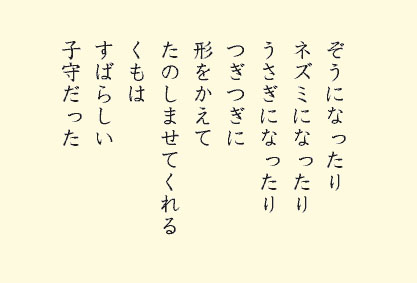 ぞうになったり
ネズミになったり
うさぎになったり
つぎつぎに
形をかえて
たのしませてくれる
くもは
すばらしい
子守だった